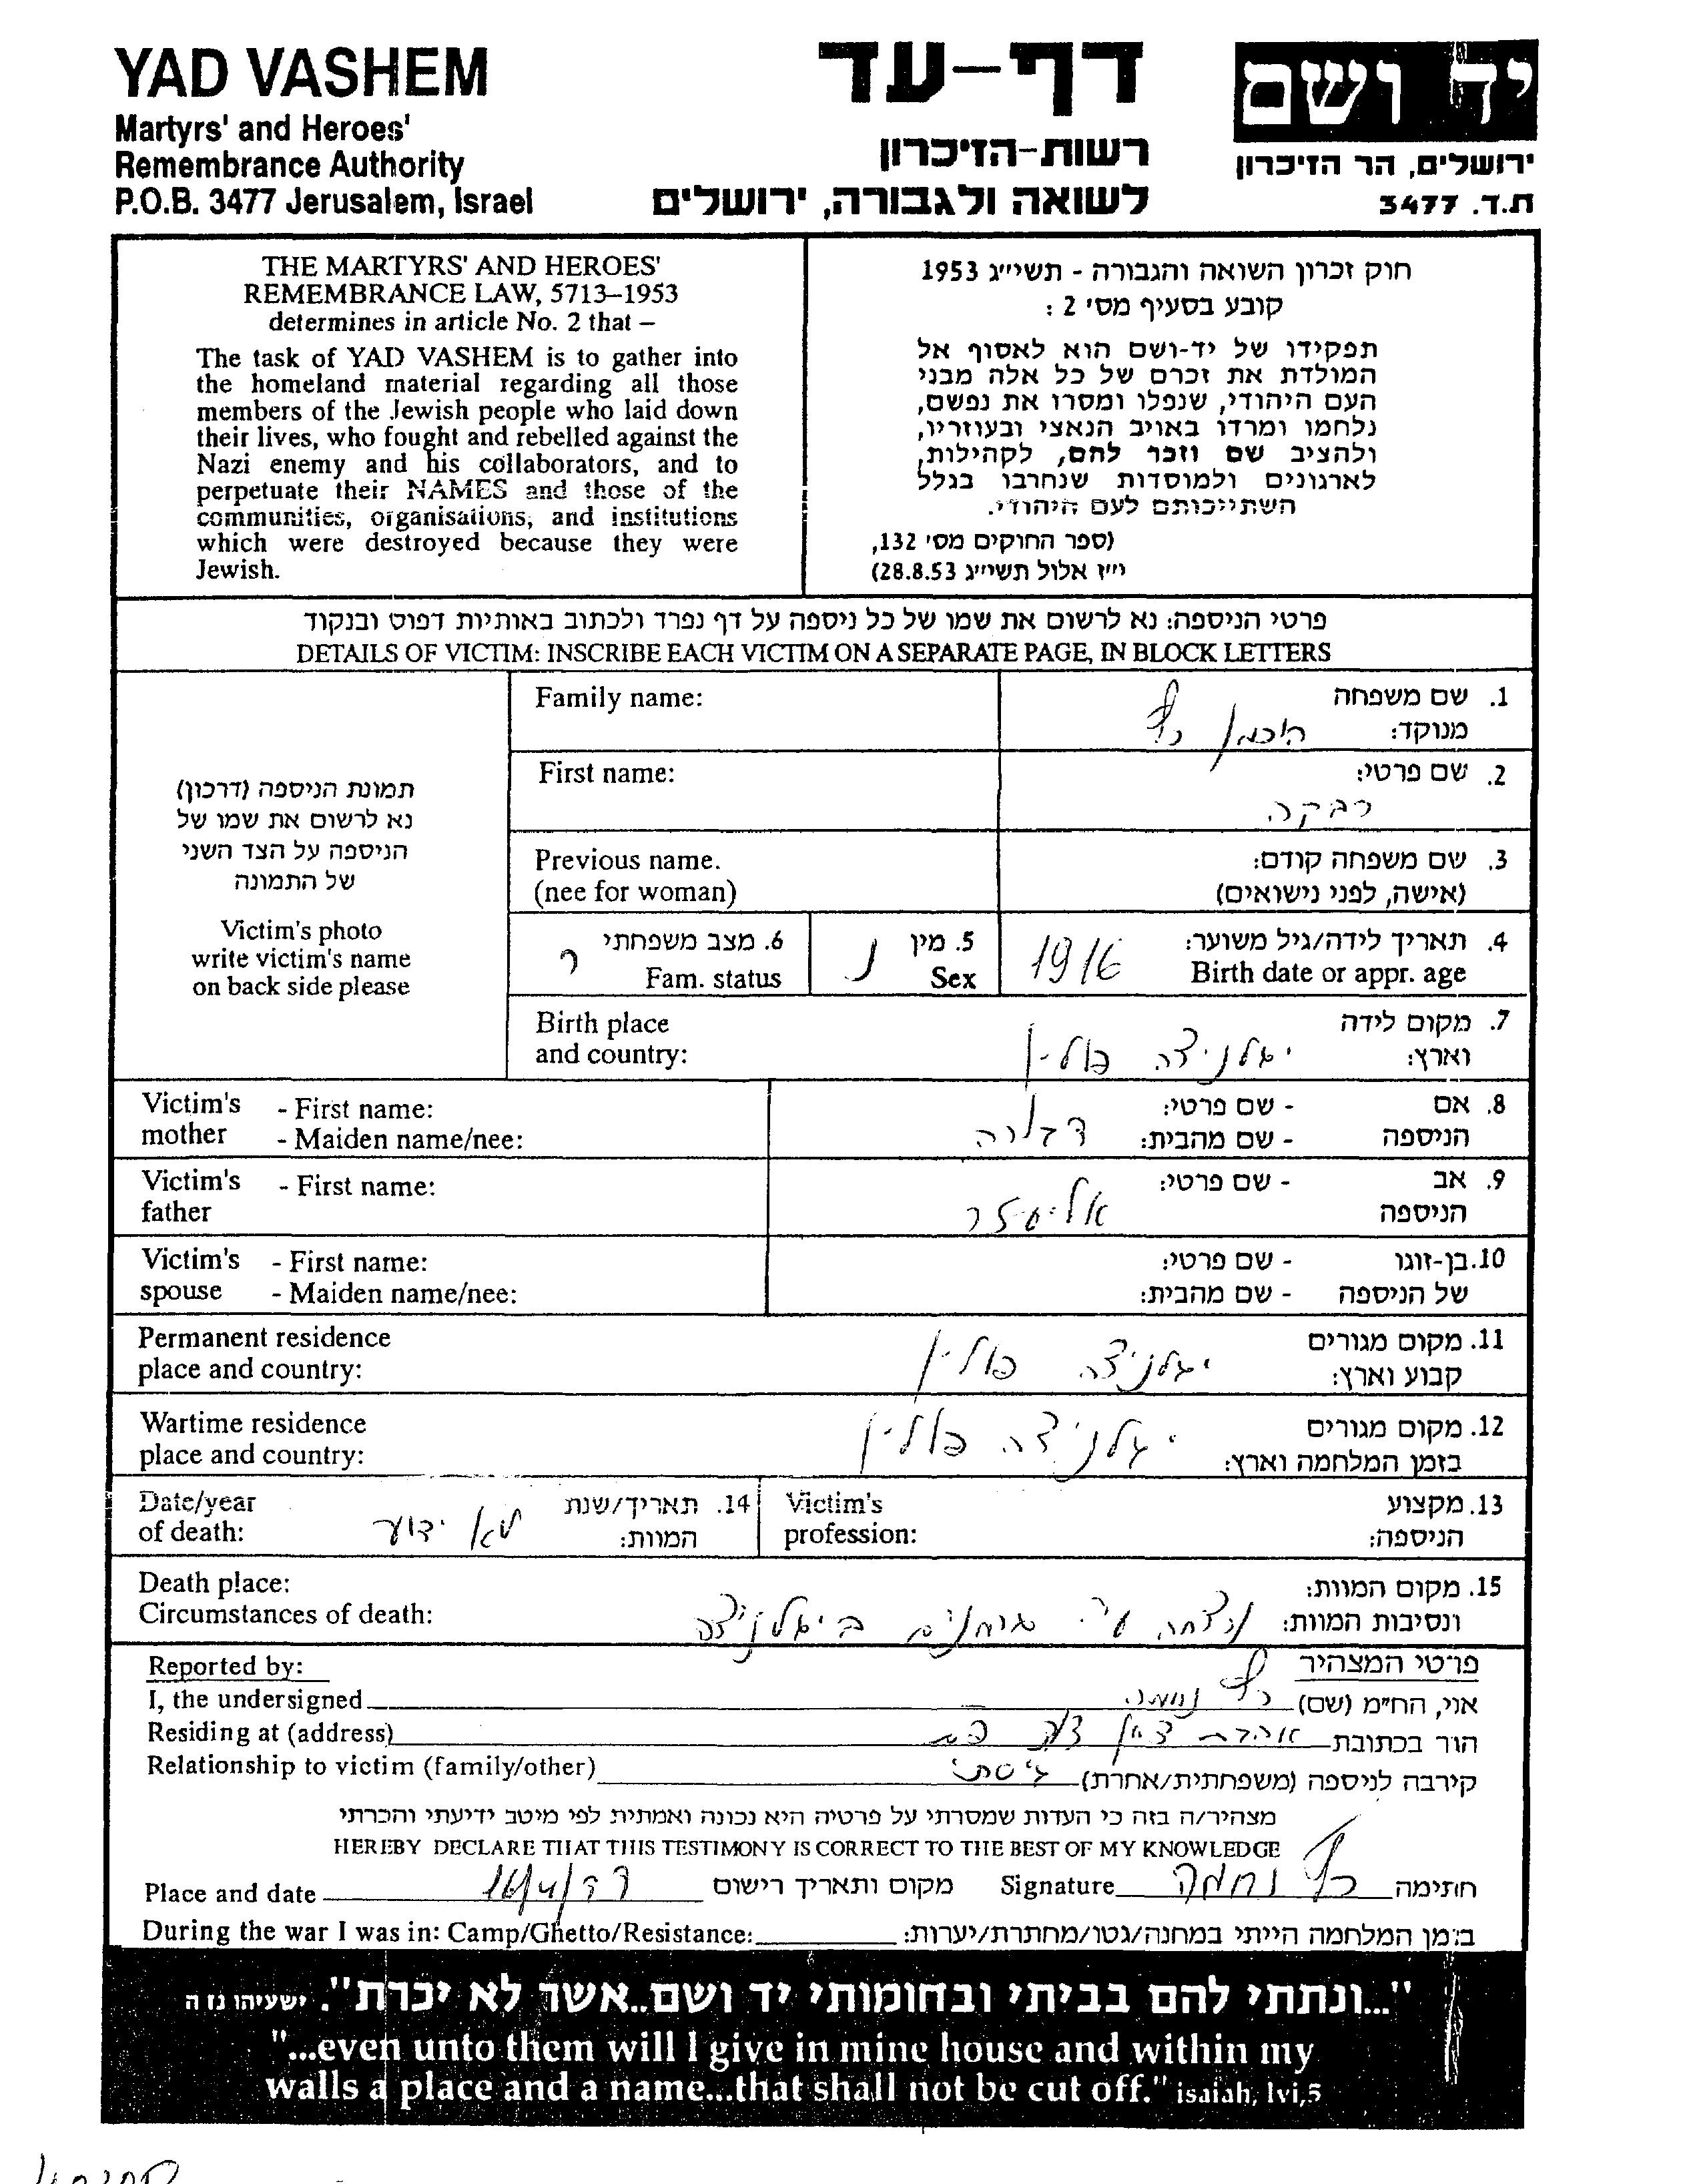 YAD VASHEM
Martyrs' and Heroes'
Remembrance Authority
P.O.B. 3477 Jerusalem, Israel
דף-עד
רשות-הזיכרון
לשואה ולגבורה, ירושלים
יד ושם
ירושלים, הר הזיכרון
ת.ד. 3477
THE MARTYRS' AND HEROES'
REMEMBRANCE LAW, 5713–1953
determines in article No. 2 that –
The task of YAD VASHEM is to gather into
the homeland material regarding all those
members of the Jewish people who laid down
their lives, who fought and rebelled against the
Nazi enemy and his collaborators, and to
perpetuate their NAMES and those of the
communities, organisations, and institutions
which were destroyed because they were
Jewish.
חוק זכרון השואה והגבורה - תשי״ג 1953
קובע בסעיף מס׳ 2 :
תפקידו של יד-ושם הוא לאסוף אל
המולדת את זכרם של כל אלה מבני
העם היהודי, שנפלו ומסרו את נפשם,
נלחמו ומרדו באויב הנאצי ובעוזריו,
ולהציב שם וזכר להם, לקהילות,
לארגונים ולמוסדות שנחרבו בגלל
השתייכותם לעם היהודי.
(ספר החוקים מס׳ 132,
י״ז אלול תשי״ג 28.8.53)
פרטי הניספה: נא לרשום את שמו של כל ניספה על דף נפרד ולכתוב באותיות דפוס ובנקוד
DETAILS OF VICTIM: INSCRIBE EACH VICTIM ON A SEPARATE PAGE, IN BLOCK LETTERS
תמונת הניספה (דרכון)
נא לרשום את שמו של
הניספה על הצד השני
של התמונה
Victim's photo
write victim's name
on back side please
Family name:
1. שם משפחה
מנוקד:
First name:
2. שם פרטי:
רבקה
Previous name.
(nee for woman)
3. שם משפחה קודם:
(אישה, לפני נישואים)
4. תאריך לידה/גיל משוער: 1916
Birth date or appr. age
5. מין נ
Sex
6. מצב משפחתי ר
Fam. status
Birth place
and country:
7. מקום לידה
וארץ: יגלניצה פולין
Victim's - First name:
mother - Maiden name/nee:
8. אם - שם פרטי:
הניספה - שם מהבית:
Victim's - First name:
father
9. אב - שם פרטי:
הניספה אליעזר
Victim's - First name:
spouse - Maiden name/nee:
10. בן-זוגו - שם פרטי:
של הניספה - שם מהבית:
Permanent residence
place and country:
11. מקום מגורים
קבוע וארץ: יגלניצה פולין
Wartime residence
place and country:
12. מקום מגורים
בזמן המלחמה וארץ: יגלניצה פולין
Date/year
of death:
14. תאריך/שנת
המוות: לא ידוע
Victim's
profession:
13. מקצוע
הניספה:
Death place:
Circumstances of death:
15. מקום המוות:
ונסיבות המוות: נרצחה ע״י גרמנים ביגלניצה
Reported by:
פרטי המצהיר
I, the undersigned
אני, החי״מ (שם) כץ נחמה
Residing at (address)
הגר בכתובת
Relationship to victim (family/other)
קירבה לניספה (משפחתית/אחרת) גיסתי
מצהיר/ה בזה כי העדות שמסרתי על פרטיה היא נכונה ואמתית לפי מיטב ידיעתי והכרתי
HEREBY DECLARE THAT THIS TESTIMONY IS CORRECT TO THE BEST OF MY KNOWLEDGE
Place and date מקום ותאריך רישום
Signature חתימה כץ נחמה
During the war I was in: Camp/Ghetto/Resistance: בזמן המלחמה הייתי במחנה/גטו/מחתרת/יערות:
"...ונתתי להם בביתי ובחומותי יד ושם..אשר לא יכרת". ישעיהו נו ה
"...even unto them will I give in mine house and within my
walls a place and a name...that shall not be cut off." isaiah, lvi,5